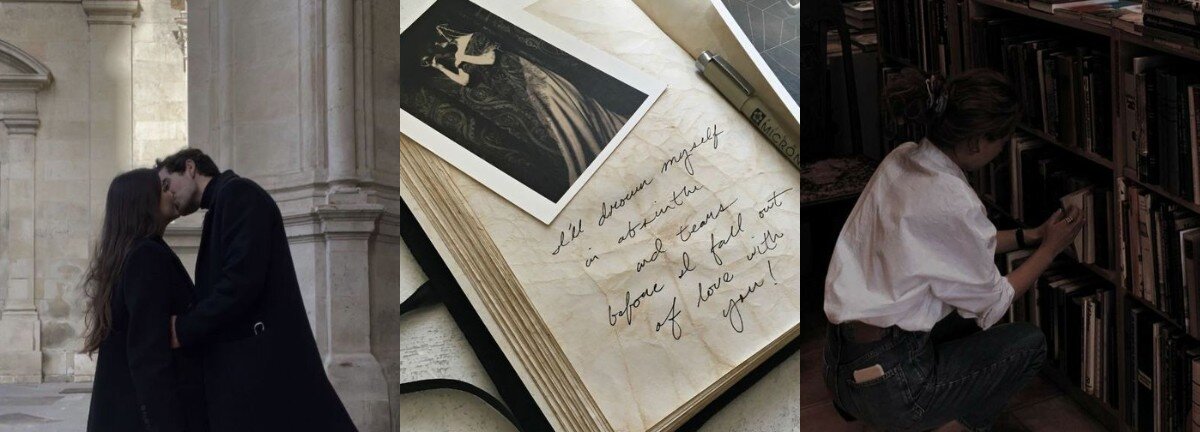 I'll drown myself
in absinthe
and tears
before I fall out
of love with
you!
MICRON